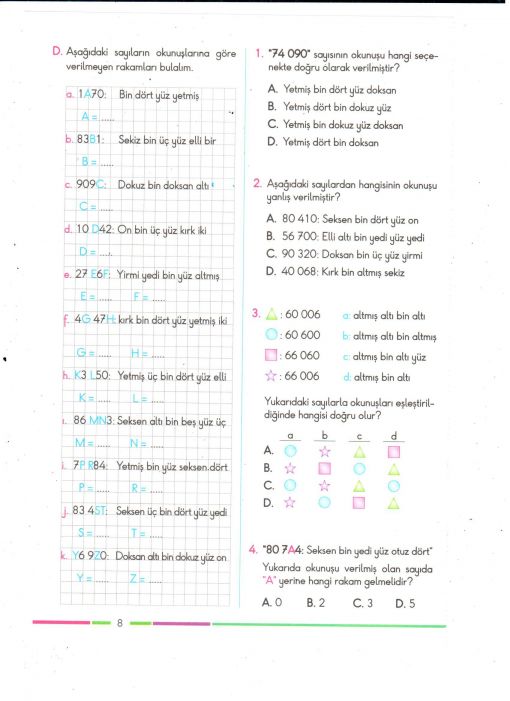 D. Aşağıdaki sayıların okunuşlarına göre
verilmeyen rakamları bulalım.
a. 1A70: Bin dört yüz yetmiş
A = .....
b. 83B1: Sekiz bin üç yüz elli bir
B = .....
c. 909C: Dokuz bin doksan altı
C = .....
d. 10 D42: On bin üç yüz kırk iki
D = .....
e. 27 E6F: Yirmi yedi bin yüz altmış
E = ..... F = .....
f. 4G 47H: kırk bin dört yüz yetmiş iki
G = ..... H = .....
h. K3 L50: Yetmiş üç bin dört yüz elli
K = ..... L = .....
ı. 86 MN3: Seksen altı bin beş yüz üç
M = ..... N = .....
i. 7P R84: Yetmiş bin yüz seksen dört
P = ..... R = .....
j. 83 4ST: Seksen üç bin dört yüz yedi
S = ..... T = .....
k. Y6 9Z0: Doksan altı bin dokuz yüz on
Y = ..... Z = .....
8
1. "74 090" sayısının okunuşu hangi seçe-
nekte doğru olarak verilmiştir?
A. Yetmiş bin dört yüz doksan
B. Yetmiş dört bin dokuz yüz
C. Yetmiş bin dokuz yüz doksan
D. Yetmiş dört bin doksan
2. Aşağıdaki sayılardan hangisinin okunuşu
yanlış verilmiştir?
A. 80 410: Seksen bin dört yüz on
B. 56 700: Elli altı bin yedi yüz yedi
C. 90 320: Doksan bin üç yüz yirmi
D. 40 068: Kırk bin altmış sekiz
3. : 60 006 a: altmış altı bin altı
: 60 600 b: altmış altı bin altmış
: 66 060 c: altmış bin altı yüz
: 66 006 d: altmış bin altı
Yukarıdaki sayılarla okunuşları eşleştiril-
diğinde hangisi doğru olur?
a b c d
A.
B.
C.
D.
4. "80 7A4: Seksen bin yedi yüz otuz dört"
Yukarıda okunuşu verilmiş olan sayıda
"A" yerine hangi rakam gelmelidir?
A. 0 B. 2 C. 3 D. 5